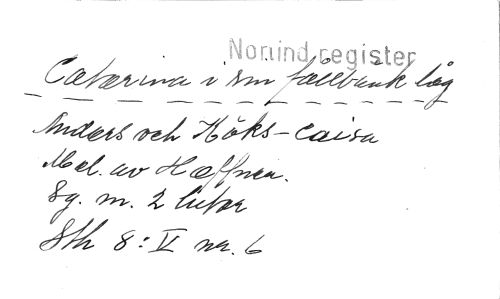 Nomind.register
Catarina i sin fällbänk låg
Anders och Köks-Caisa
Mel. av Hæffner.
Sg. m. 2 lutor
Sth 8:V nr. 6